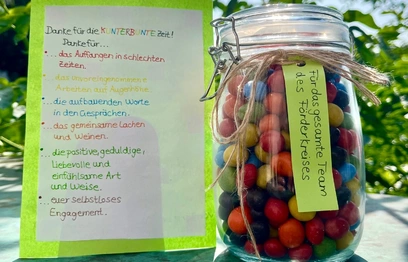 Danke für die KUNTERBUNTE Zeit!
Danke für...
... das Auffangen in schlechten
Zeiten.
... die aufbauenden Worte
in den Gesprächen.
... das gemeinsame Lachen
und Weinen.
... die positive, geduldige,
liebevolle und
einfühlsame Art
und Weise.
... euer selbstloses
Engagement.
Für das gesamte Team
des Förderkreises